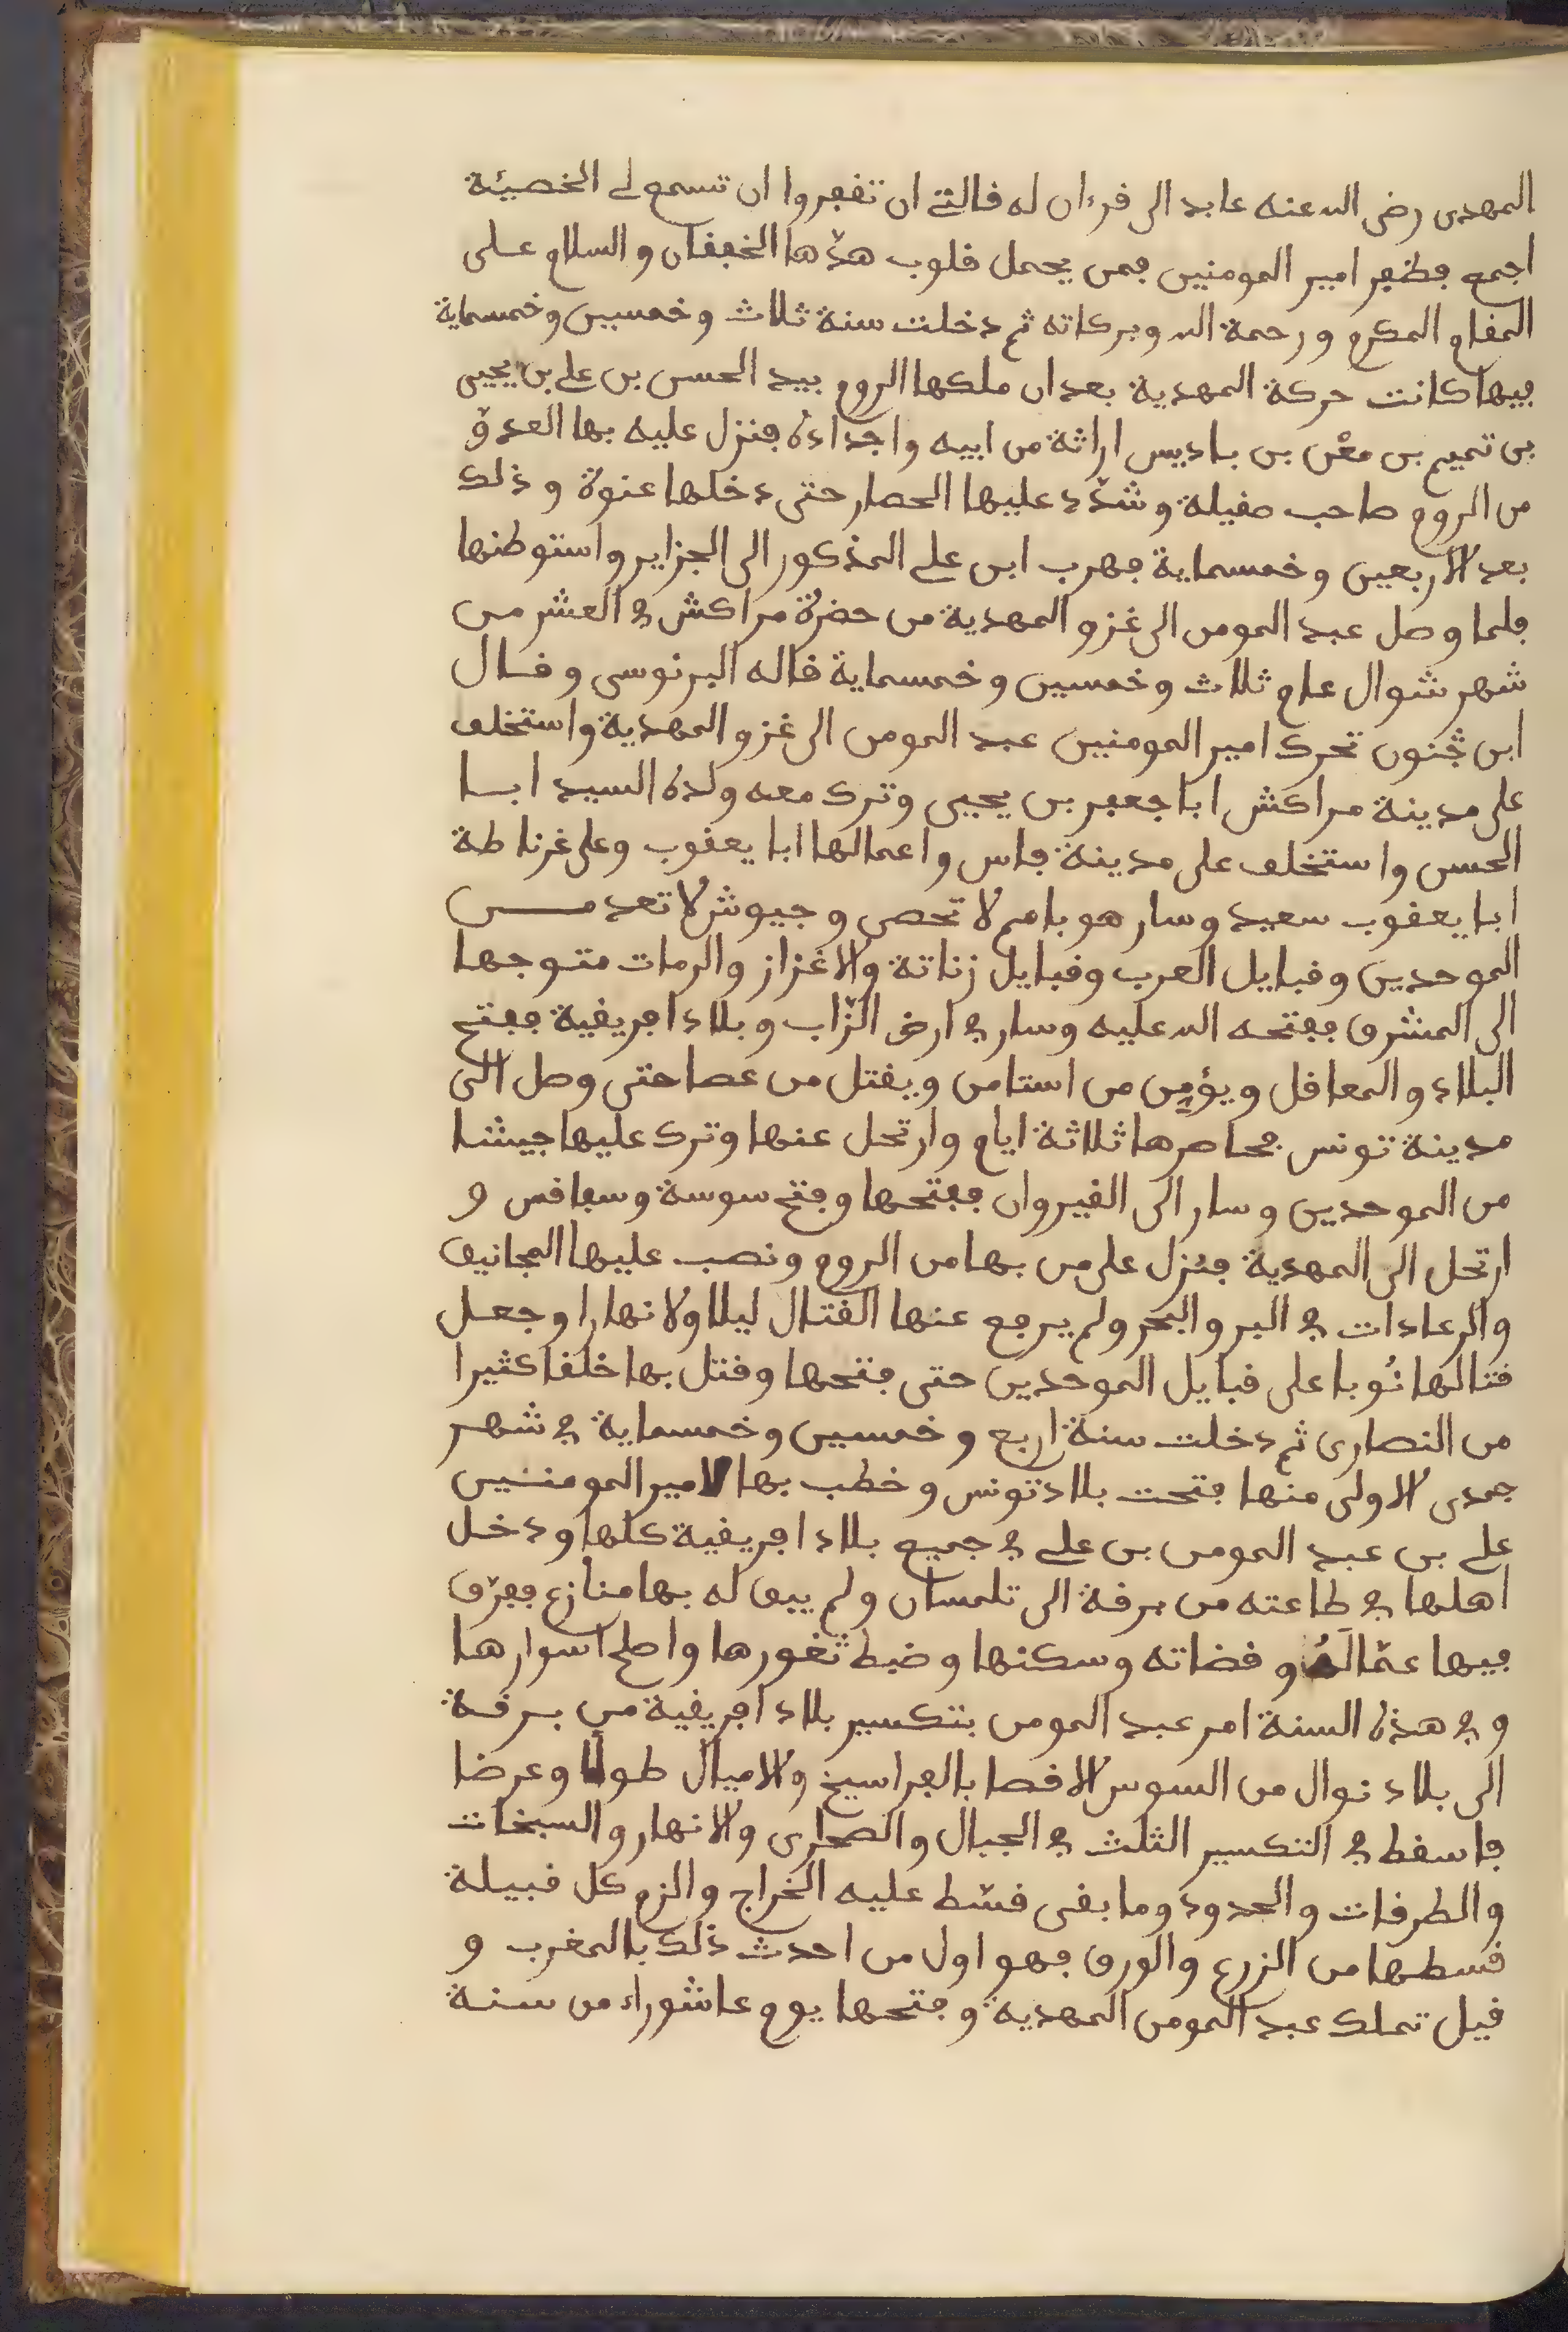 المهدى رضى الله عنه عابد الى قرءان له قالتے ان تفجروا ان تسمع لے الخصيئة
اجمع فظفر امير المومنين فمن يحمل قلوب هذّها الخفقان والسلام على
المقام المكرم ورحمة الله وبركاته ثم دخلت سنة ثلاث وخمسين وخمسماية
فيها كانت حركة المهدية بعد ان ملكها الروم بيد الحسن بن علے بن يحيى
بن تميم بن معْن بن باديس اراثة من ابيه واجداده فنزل عليه بها العدوّ
من الروم صاحب صفيلة وشدّد عليها الحصار حتى دخلها عنوة وذلك
بعد الاربعين وخمسماية فهرب ابن علے المذكور الى الجزاير واستوطنها
فلما وصل عبد المومن الى غزو المهدية من حضرة مراكش في العشر من
شهر شوال عام ثلاث وخمسين وخمسماية قاله البرنوسى وقال
ابن جّنون تحرك امير المومنين عبد المومن الى غزو المهدية واستخلف
على مدينة مراكش ابا جعفر بن يحيى وترك معه ولده السيد ابا
الحسن واستخلف على مدينة فاس واعمالها ابا يعقوب وعلى غرناطة
ابا يعقوب سعيد وسار هو بامم لا تحصى وجيوش لا تعد من
الموحدين وقبايل العرب وقبايل زناتة والاغزاز والرمات متوجها
الى المشرق ففتحه الله عليه وسار في ارض الزّاب وبلاد افريقية ففتح
البلاد والمعاقل ويؤمِن من استامن ويقتل من عصا حتى وصل الى
مدينة تونس فحاصرها ثلاثة ايام وارتحل عنها وترك عليها جيشا
من الموحدين وسار الى القيروان ففتحها وفتح سوسة وسفاقس و
ارتحل الى المهدية فنزل على من بها من الروم ونصب عليها المجانيق
والرعادات في البر والبحر ولم يرجع عنها القتال ليلا ولا نهارا وجعل
قتالها نُوبا على قبايل الموحدين حتى فتحها وقتل بها خلقا كثيرا
من النصارى ثم دخلت سنة اربع وخمسين وخمسماية في شهر
جمدى الاولى منها فتحت بلاد تونس وخطب بها لامير المومنين
علے بن عبد المومن بن علے في جميع بلاد افريقية كلها ودخل
اهلها في طاعته من برقة الى تلمسان ولم يبق له بها منازع ففرّق
فيها عمّالَهُ وقضاته وسكنها وضبط ثغورها واصلح اسوارها
وفي هذه السنة امر عبد المومن بتكسير بلاد افريقية من برقة
الى بلاد نوال من السوس الاقصا بالفراسيخ والاميال طولا وعرضا
فاسقط في التكسير الثلث في الجبال والصحارى والانهار والسبخات
والطرقات والحدود وما بقى قسّط عليه الخراج والزم كل قبيلة
قسطها من الزرع والورق فهو اول من احدث ذلك بالمغرب و
قيل تملك عبد المومن المهدية وفتحها يوم عاشوراء من سنة